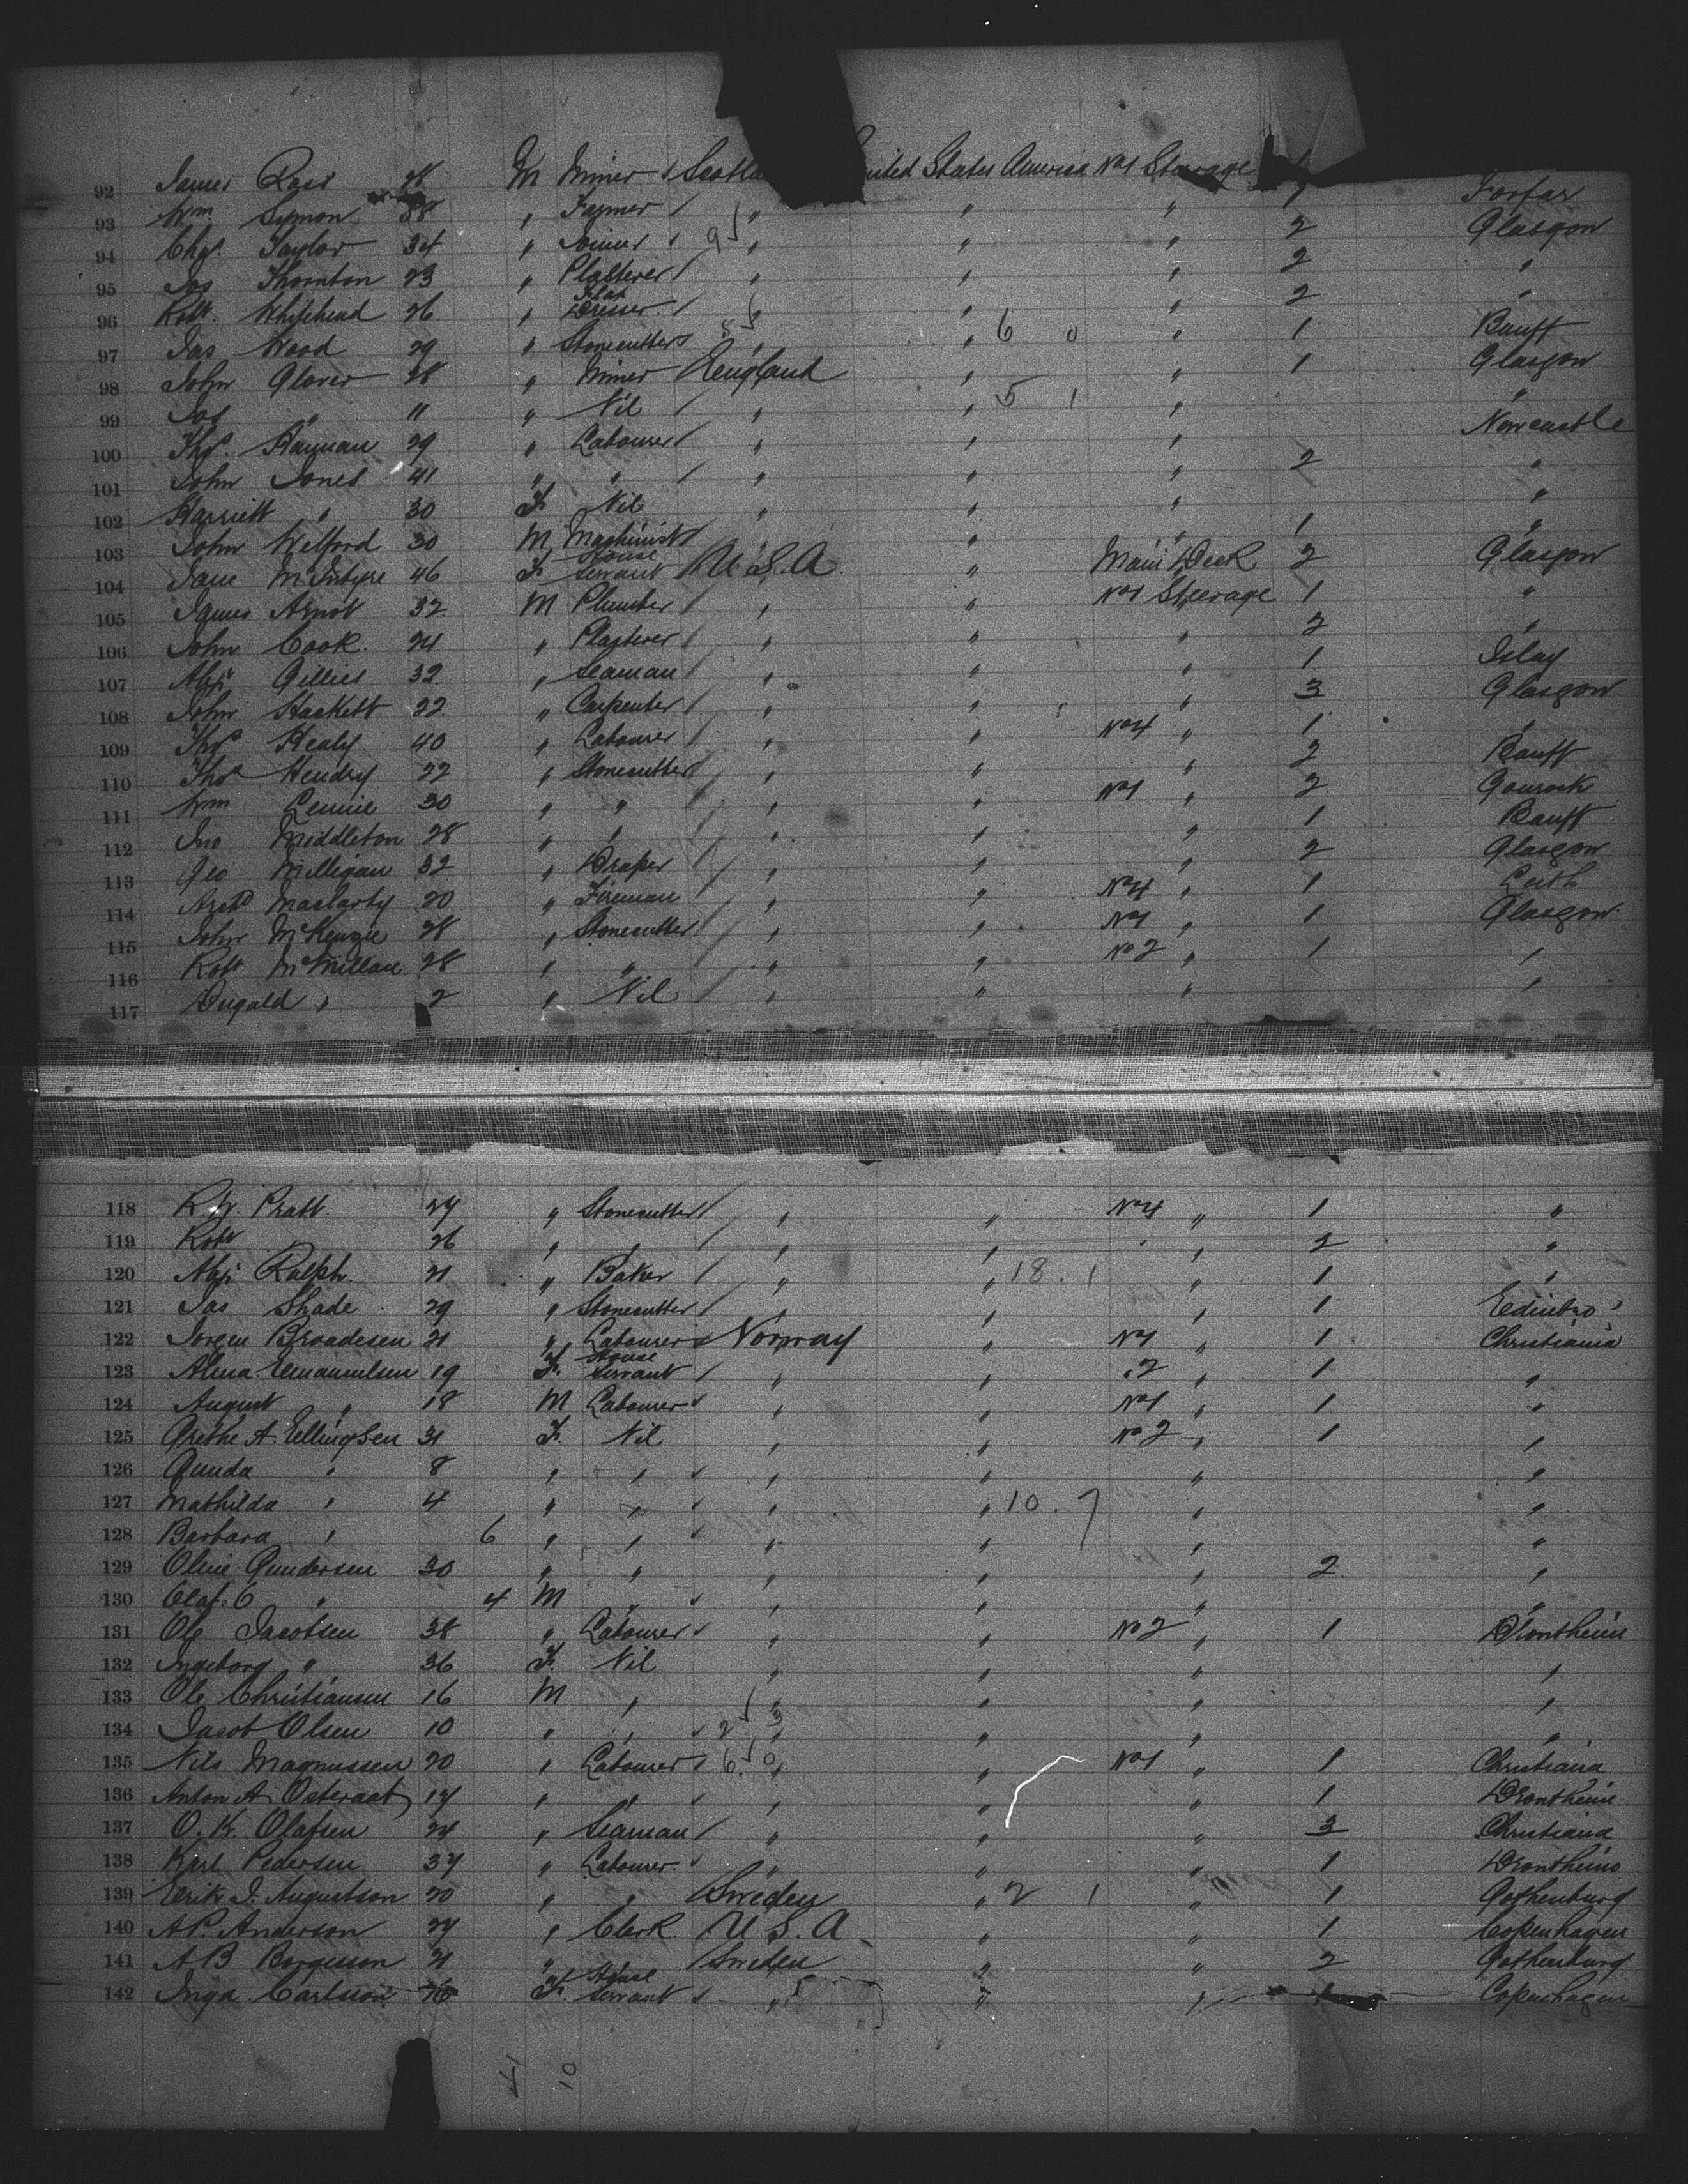 92 James Ross 28 M Miner Scotla United States America No1 Steerage 1 Forfar
93 Wm Symon 38 " Farmer " " " 2 Glasgow
94 Chas. Taylor 34 " Joiner 9 " " " 2 "
95 Jas Thornton 23 " Plasterer " " " 2 "
96 Robt. Whitehead 26 " Flax Dresser " " " 1 Banff
97 Jas Wood 29 " Stonecutter " " 6 0 " 1 Glasgow
98 John Glover 28 " Miner England " " "
99 Jas " 11 " Nil " " 5 1 " Newcastle
100 Thos. 29 " Labourer " " " 2 "
101 John Jones 41 " " " " " "
102 Harriett " 30 F. Nil " " " 1 "
103 John Welford 30 M Machinist " " " 2 Glasgow
104 Jane McIntyre 46 F. House Servant U.S.A. " Main Deck 1 "
105 James Arnot 32 M Plumber " " No1 Steerage 2 "
106 John Cook. 24 " Plasterer " " " 1 Islay
107 Alex Gillies 32 " Seaman " " " 3 Glasgow
108 John Hackett 22 " Carpenter " " " 1 "
109 Thos Healy 40 " Labourer " " No4 " 2 Banff
110 Thos Hendry 22 " Stonecutter " " " 2 Gourock
111 Wm Lennie 30 " " " " No1 " 1 Banff
112 Jno Middleton 28 " " " " " 2 Glasgow
113 Geo Milligan 32 " Draper " " " 1 Leith
114 Archd Maclarty 20 " Fireman " " No4 " 1 Glasgow
115 John McKenzie 28 " Stonecutter " " No1 " 1 "
116 Robt McMillan 28 " " " " No2 " "
117 Dugald " 2 " Nil " " "
118 R.W. Pratt 27 " Stonecutter " " No4 " 1 "
119 Robt " 26 " " " " " 2 "
120 Alex Ralph. 21 " Baker " " 18. 1 " 1 "
121 Jas Shade 29 " Stonecutter " " " 1 Edinbro'
122 Jorgen Broadesen 21 " Labourer Norway " No1 " 1 Christiania
123 Alma Emanuelsen 19 F. House Servant " " 2 " 1 "
124 August " 18 M Labourer " " No1 " 1 "
125 Grethe A. Ellingsen 31 F. Nil " " No2 " 1 "
126 Gunda " 8 " " " " " "
127 Mathilda " 4 " " " " 10. 7 " "
128 Barbara " 6 " " " " " "
129 Oline Gundersen 30 " " " " " 2 "
130 Olaf. C " 4 M " " " " "
131 Ole Jacobsen 38 " Labourer " " No2 " 1 Drontheim
132 Ingeborg " 36 F. Nil " " " "
133 Ole Christiansen 16 M " " " " "
134 Jacob Olsen 10 " " 2 3 " " " "
135 Nils Magnussen 20 " Labourer 6. 0 " " No1 " 1 Christiania
136 Anton A. Osteraat 17 " " " " " 1 Drontheim
137 O. K. Olafsen 24 " Seaman " " " 3 Christiania
138 Karl Pedersen 37 " Labourer " " " 1 Drontheim
139 Erik J. Augustson 20 " " Sweden " 2 1 " 1 Gothenburg
140 A.P. Anderson 27 " Clerk U.S.A. " " 1 Copenhagen
141 A B Borgesson 21 " " Sweden " " 2 Gothenburg
142 Inga Carlsson 26 F. House Servant " " " 1 Copenhagen
41 10